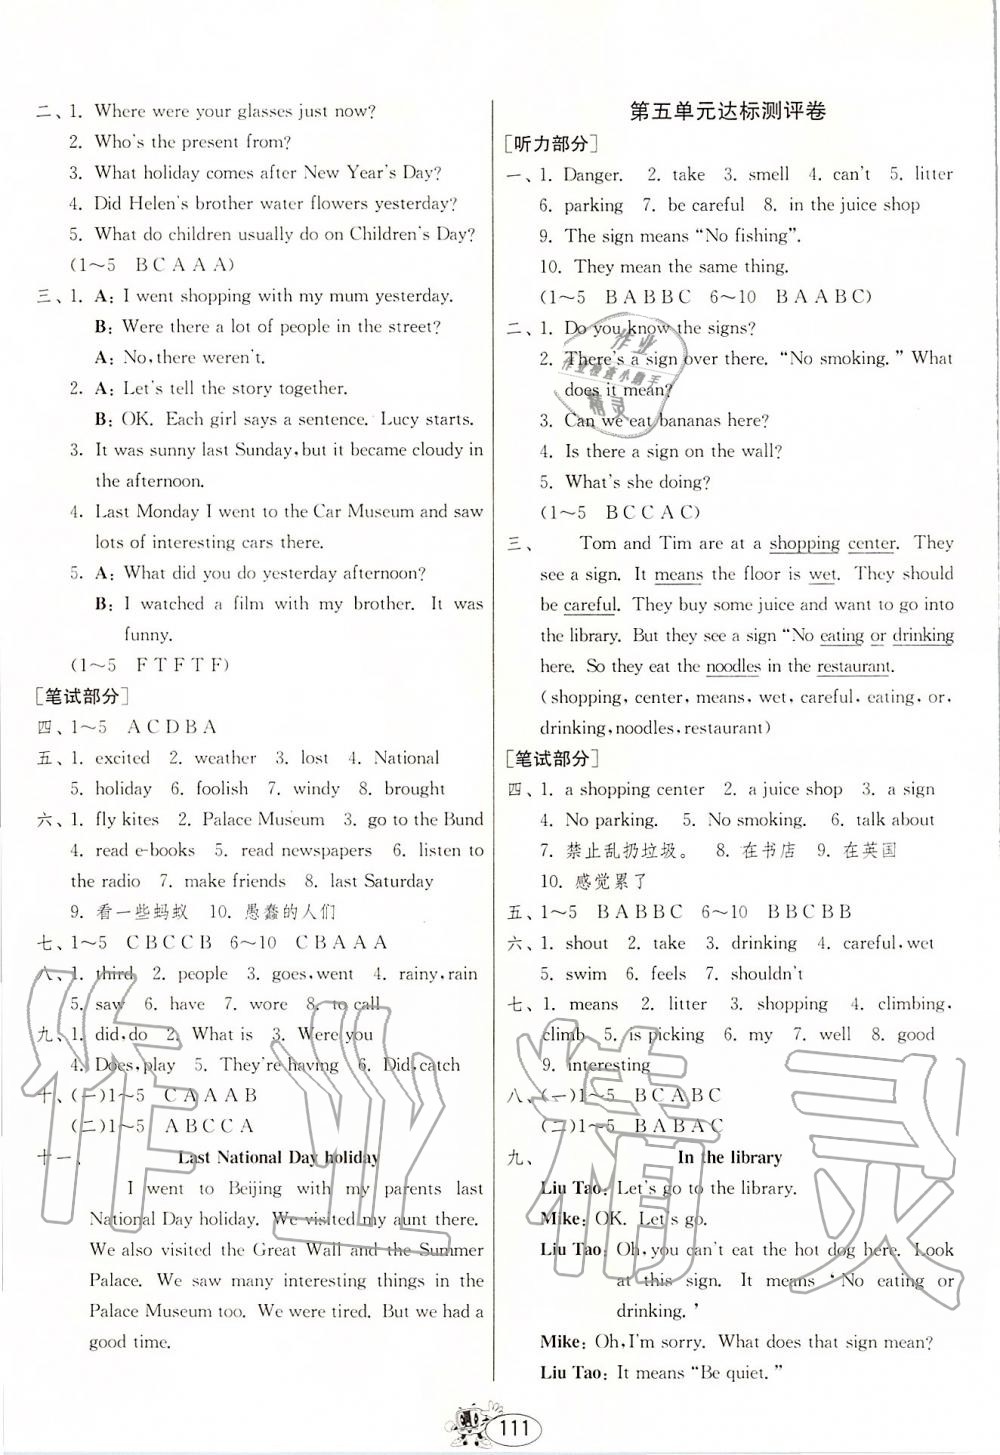 二、1. Where were your glasses just now?
2. Who's the present from?
3. What holiday comes after New Year's Day?
4. Did Helen's brother water flowers yesterday?
5. What do children usually do on Children's Day?
(1～5 B C A A A)
三、1. A: I went shopping with my mum yesterday.
B: Were there a lot of people in the street?
A: No, there weren't.
2. A: Let's tell the story together.
B: OK. Each girl says a sentence. Lucy starts.
3. It was sunny last Sunday, but it became cloudy in
the afternoon.
4. Last Monday I went to the Car Museum and saw
lots of interesting cars there.
5. A: What did you do yesterday afternoon?
B: I watched a film with my brother. It was
funny.
(1～5 F T F T F)
[笔试部分]
四、1～5 A C D B A
五、1. excited 2. weather 3. lost 4. National
5. holiday 6. foolish 7. windy 8. brought
六、1. fly kites 2. Palace Museum 3. go to the Bund
4. read e-books 5. read newspapers 6. listen to
the radio 7. make friends 8. last Saturday
9. 看一些蚂蚁 10. 愚蠢的人们
七、1～5 C B C C B 6～10 C B A A A
八、1. third 2. people 3. goes, went 4. rainy, rain
5. saw 6. have 7. wore 8. to call
九、1. did, do 2. What is 3. Were you
4. Does, play 5. They're having 6. Did, catch
十、(一)1～5 C A A A B
(二)1～5 A B C C A
十一、 Last National Day holiday
I went to Beijing with my parents last
National Day holiday. We visited my aunt there.
We also visited the Great Wall and the Summer
Palace. We saw many interesting things in the
Palace Museum too. We were tired. But we had a
good time.
第五单元达标测评卷
[听力部分]
一、1. Danger. 2. take 3. smell 4. can't 5. litter
6. parking 7. be careful 8. in the juice shop
9. The sign means "No fishing".
10. They mean the same thing.
(1～5 B A B B C 6～10 B A A B C)
二、1. Do you know the signs?
2. There's a sign over there. "No smoking." What
does it mean?
3. Can we eat bananas here?
4. Is there a sign on the wall?
5. What's she doing?
(1～5 B C C A C)
三、 Tom and Tim are at a shopping center. They
see a sign. It means the floor is wet. They should
be careful. They buy some juice and want to go into
the library. But they see a sign "No eating or drinking
here. So they eat the noodles in the restaurant.
(shopping, center, means, wet, careful, eating, or,
drinking, noodles, restaurant)
[笔试部分]
四、1. a shopping center 2. a juice shop 3. a sign
4. No parking. 5. No smoking. 6. talk about
7. 禁止乱扔垃圾。 8. 在书店 9. 在英国
10. 感觉累了
五、1～5 B A B B C 6～10 B B C B B
六、1. shout 2. take 3. drinking 4. careful, wet
5. swim 6. feels 7. shouldn't
七、1. means 2. litter 3. shopping 4. climbing,
climb 5. is picking 6. my 7. well 8. good
9. interesting
八、(一)1～5 B C A B C
(二)1～5 B A B A C
九、 In the library
Liu Tao: Let's go to the library.
Mike: OK. Let's go.
Liu Tao: Oh, you can't eat the hot dog here. Look
at this sign. It means 'No eating or
drinking.'
Mike: Oh, I'm sorry. What does that sign mean?
Liu Tao: It means "Be quiet."
111
作业
作业检查小助手
精灵
作业精灵